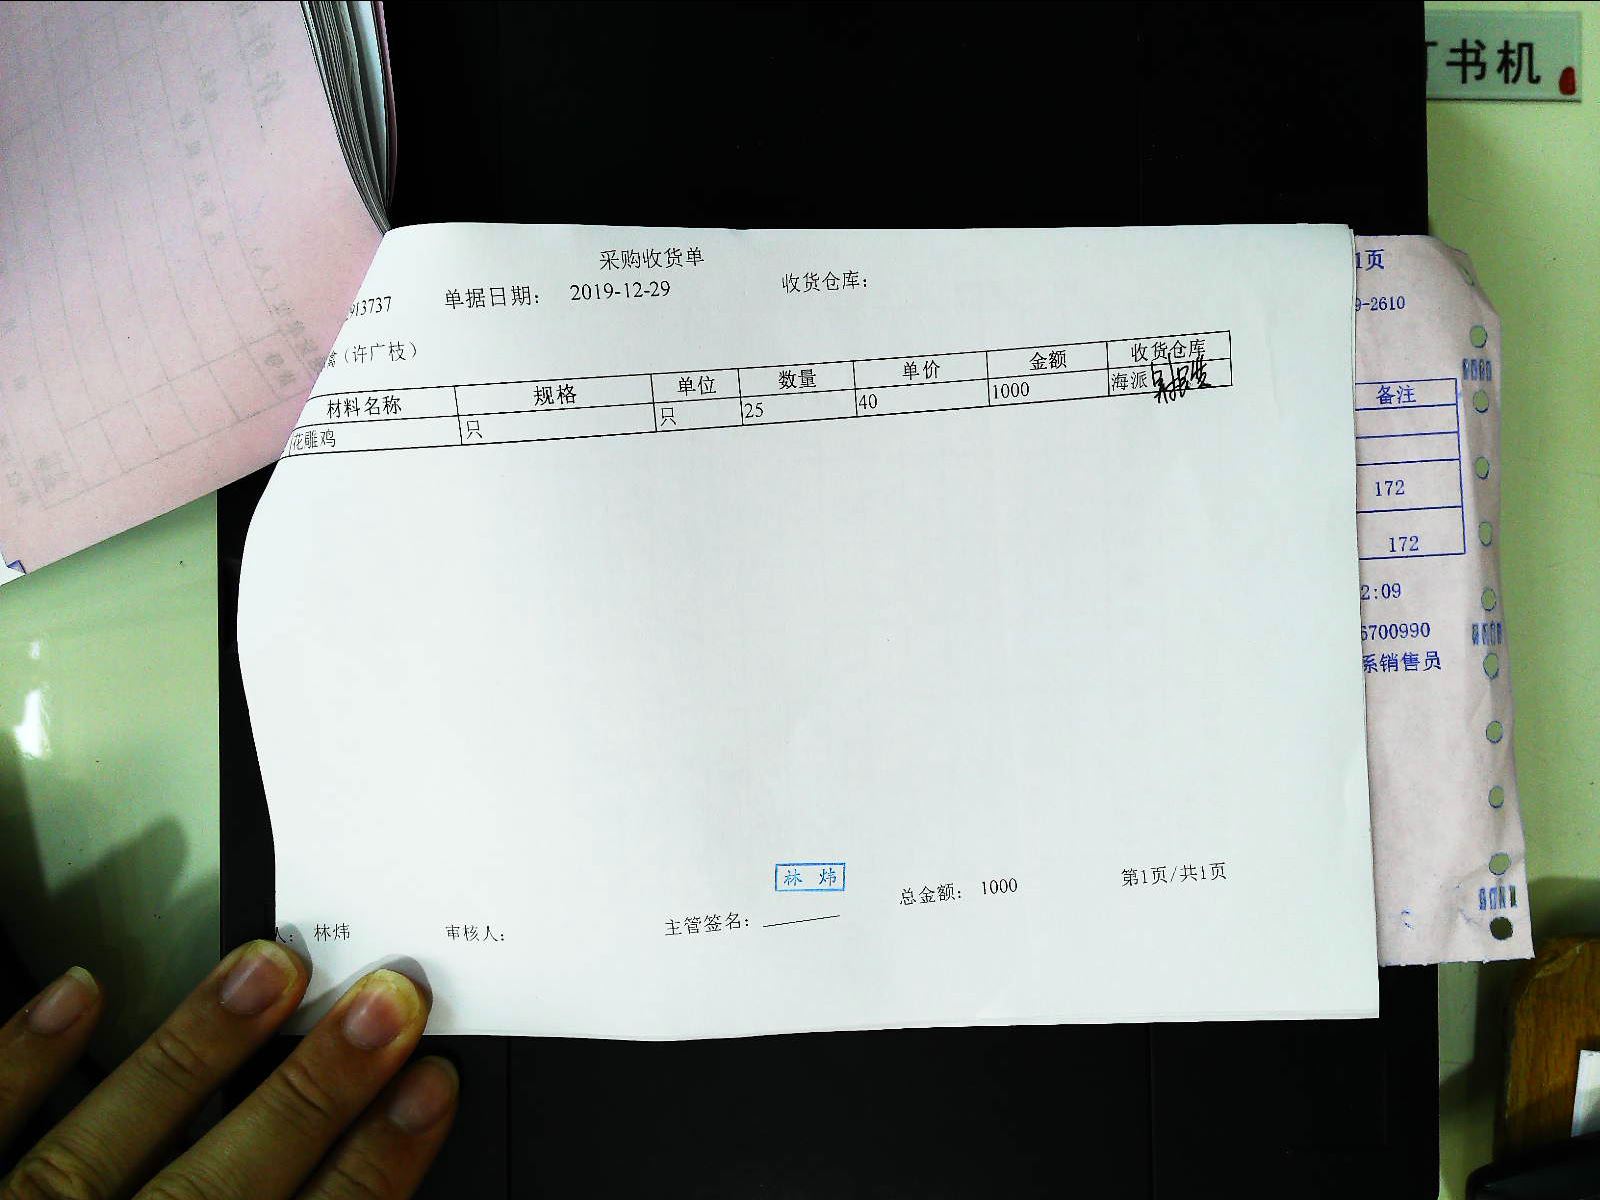 书机
采购收货单
913737 单据日期: 2019-12-29 收货仓库:
(许广枝)
材料名称 规格 单位 数量 单价 金额 收货仓库
花雕鸡 只 只 25 40 1000 海派
林炜
人: 林炜 审核人: 主管签名: 总金额: 1000 第1页/共1页
1页
9-2610
备注
172
172
2:09
6700990
系销售员